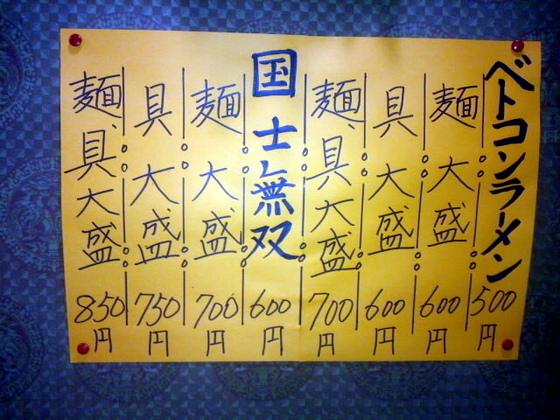 ベトコンラーメン 500円
麺大盛 600円
具大盛 600円
麺、具大盛 700円
国士無双 600円
麺大盛 700円
具大盛 750円
麺、具大盛 850円